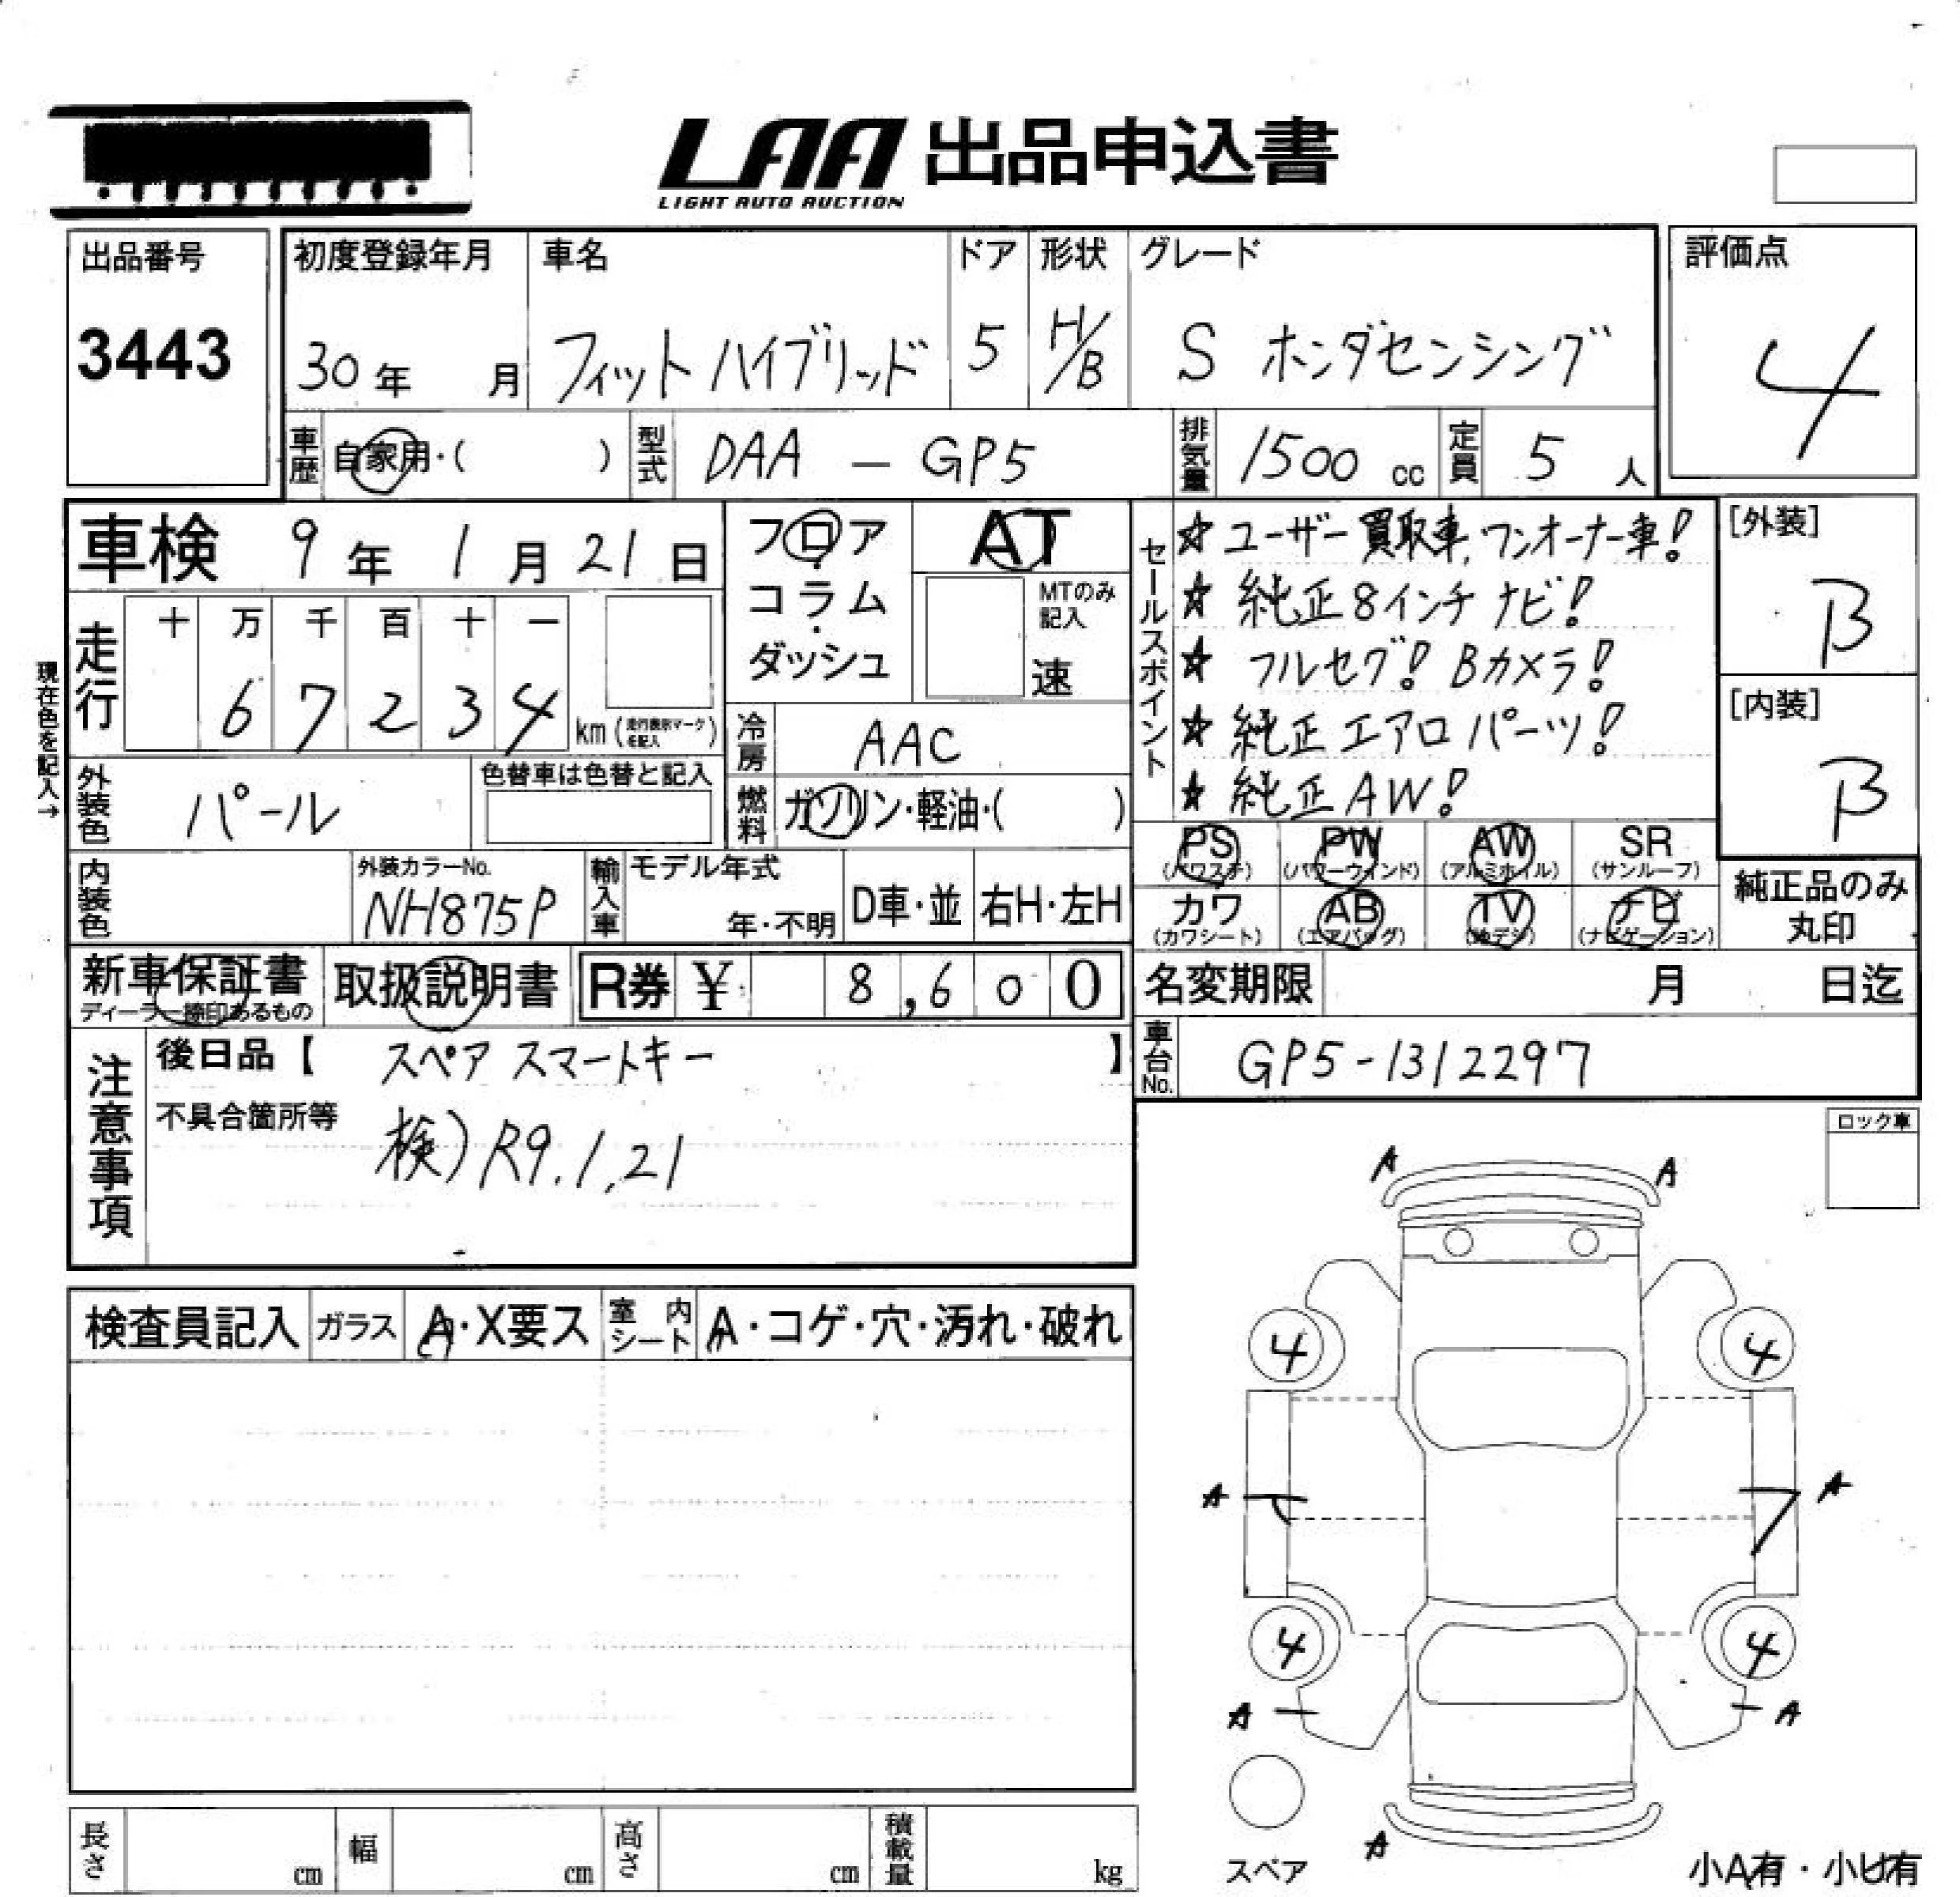 LAA 出品申込書
LIGHT AUTO AUCTION
出品番号
3443
初度登録年月
30年 月
車名
フィットハイブリッド
ドア
5
形状
H/B
グレード
S ホンダセンシング
評価点
4
車歴 自家用・( )
型式 DAA - GP5
排気量 1500 cc
定員 5 人
車検 9年 1月 21日
フロア・コラム・ダッシュ
AT
MTのみ記入
速
セールスポイント
☆ ユーザー買取車、ワンオーナー車!
☆ 純正8インチナビ!
☆ フルセグ! Bカメラ!
☆ 純正エアロパーツ!
☆ 純正AW!
[外装]
B
[内装]
B
現在色を記入→
走行
十 万 千 百 十 一
6 7 2 3 4 km (走行表示マーク を記入)
冷房 AAC
外装色 パール
色替車は色替と記入
燃料 ガソリン・軽油・( )
PS (パワステ) PW (パワーウインド) AW (アルミホイル) SR (サンルーフ)
カワ (カワシート) AB (エアバッグ) TV (地デジ) ナビ (ナビゲーション)
純正品のみ丸印
内装色
外装カラーNo.
NH875P
輸入車
モデル年式
年・不明
D車・並
右H・左H
新車保証書
ディーラー捺印あるもの
取扱説明書
R券 ¥ 8,600
名変期限 月 日迄
車台No. GP5-1312297
注意事項
後日品【 スペアスマートキー 】
不具合箇所等
検) R9.1.21
ロック車
検査員記入
ガラス A・X要ス
室内シート A・コゲ・穴・汚れ・破れ
A A
4 4
A A
4 4
A A
A
スペア
小A有・小U有
長さ cm
幅 cm
高さ cm
積載量 kg